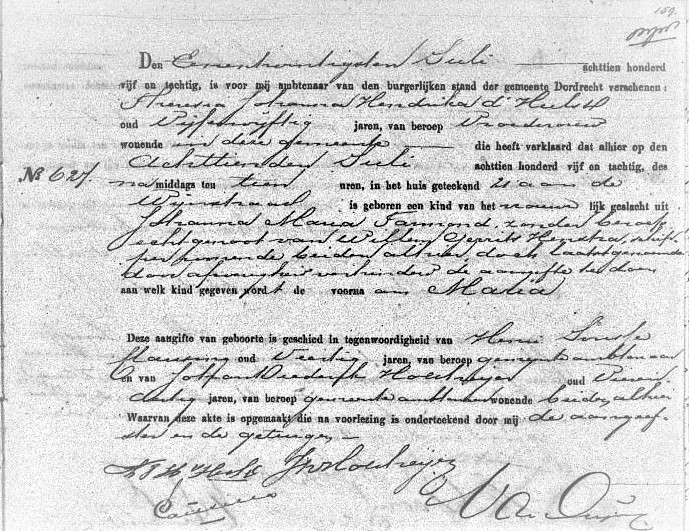 159.
Den Eenentwintigsten Juli achttien honderd
vijf en tachtig, is voor mij ambtenaar van den burgerlijken stand der gemeente Dordrecht verschenen:
Theresia Johanna Hendrika d'Hulst
oud Vijfenvijftig jaren, van beroep Vroedvrouw
wonende in deze gemeente die heeft verklaard dat alhier op den
Achttienden Juli achttien honderd vijf en tachtig, des
No 627. na middags ten tien uren, in het huis geteekend aan de
Wijnstraat is geboren een kind van het vrouwe lijk geslacht uit
Johanna Maria zonder beroep
echtgenoot van Willem Gerrit schip-
per wonende beiden alhier, doch laatstgenoemde
door afwezigheid verhinderd de aangifte te doen
aan welk kind gegeven wordt de voorna am Maria
Deze aangifte van geboorte is geschied in tegenwoordigheid van Henri
oud Veertig jaren, van beroep gemeente ambtenaar
en van Johan Diederik oud Vieren
dertig jaren, van beroep gemeente ambtenaar wonende beiden alhier
Waarvan deze akte is opgemaakt die na voorlezing is onderteekend door mij de aangeef-
ster en de getuigen